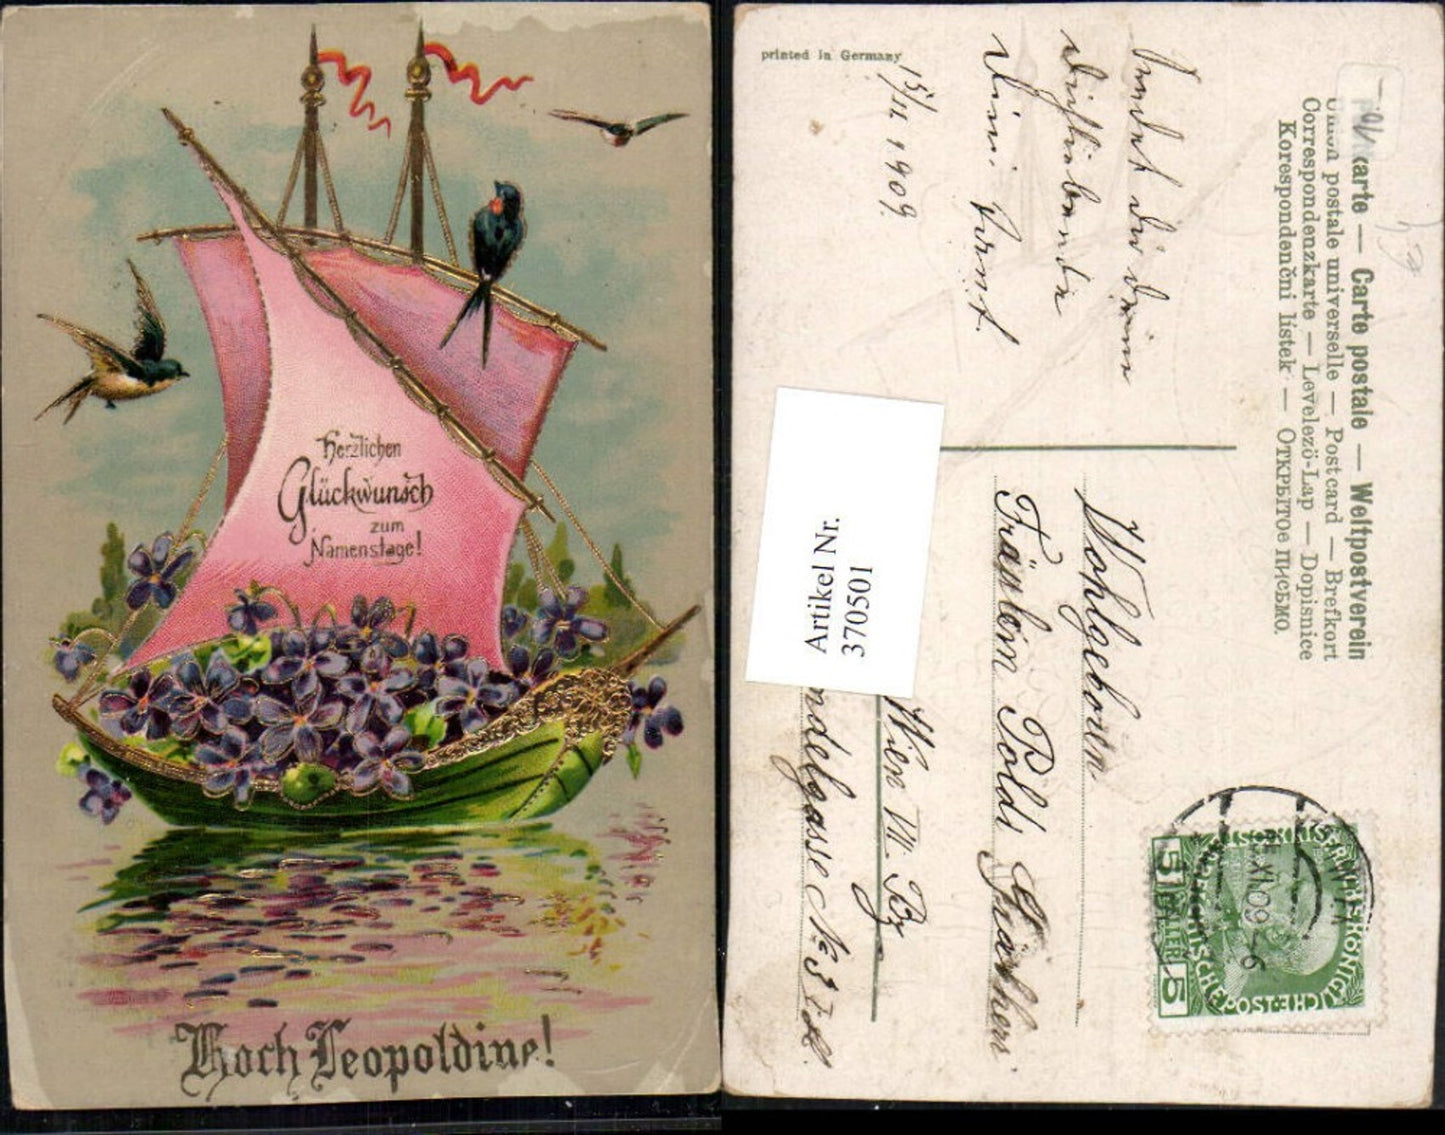 Herzlichen
Glückwunsch
zum
Namenstage!
Hoch Leopoldine!
printed in Germany
karte — Carte postale — Weltpostverein
Union postale universelle — Postcard — Brefkort
Correspondenzkarte — Levelező-Lap — Dopisnice
Korespondenční lístek — Открытое письмо.
sendet dir deine
dich liebende
15/11 1909.
Artikel Nr.
370501
Wohlgeboren
Fräulein Poldi
Wien VII. Bz
ndelgasse No 3
5 HELLER 5